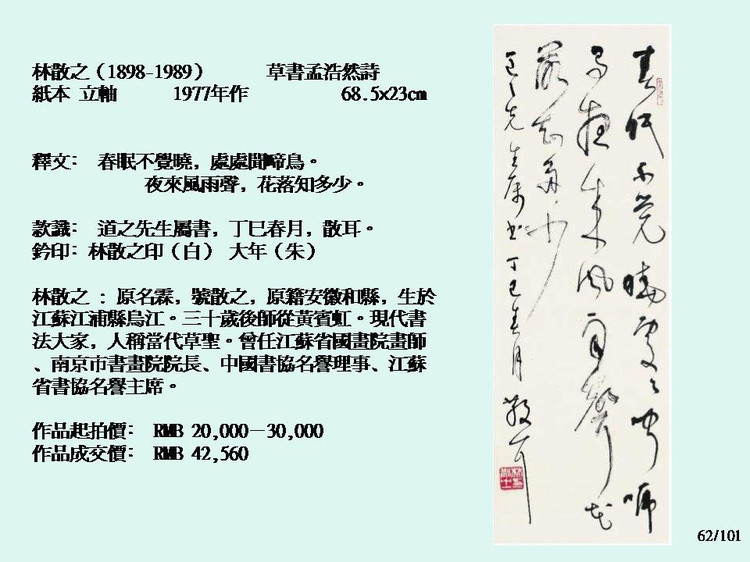 林散之（1898-1989） 草書孟浩然詩
紙本 立軸 1977年作 68.5x23cm
釋文： 春眠不覺曉，處處聞啼鳥。
夜來風雨聲，花落知多少。
款識： 道之先生屬書，丁巳春月，散耳。
鈐印：林散之印（白） 大年（朱）
林散之 : 原名霖，號散之，原籍安徽和縣，生於
江蘇江浦縣烏江。三十歲後師從黃賓虹。現代書
法大家，人稱當代草聖。曾任江蘇省國畫院畫師
、南京市書畫院院長、中國書協名譽理事、江蘇
省書協名譽主席。
作品起拍價： RMB 20,000－30,000
作品成交價： RMB 42,560
春眠不覺曉處處聞啼
鳥夜來風雨聲花
落知多少
道之先生屬書丁巳春月 散耳
62/101